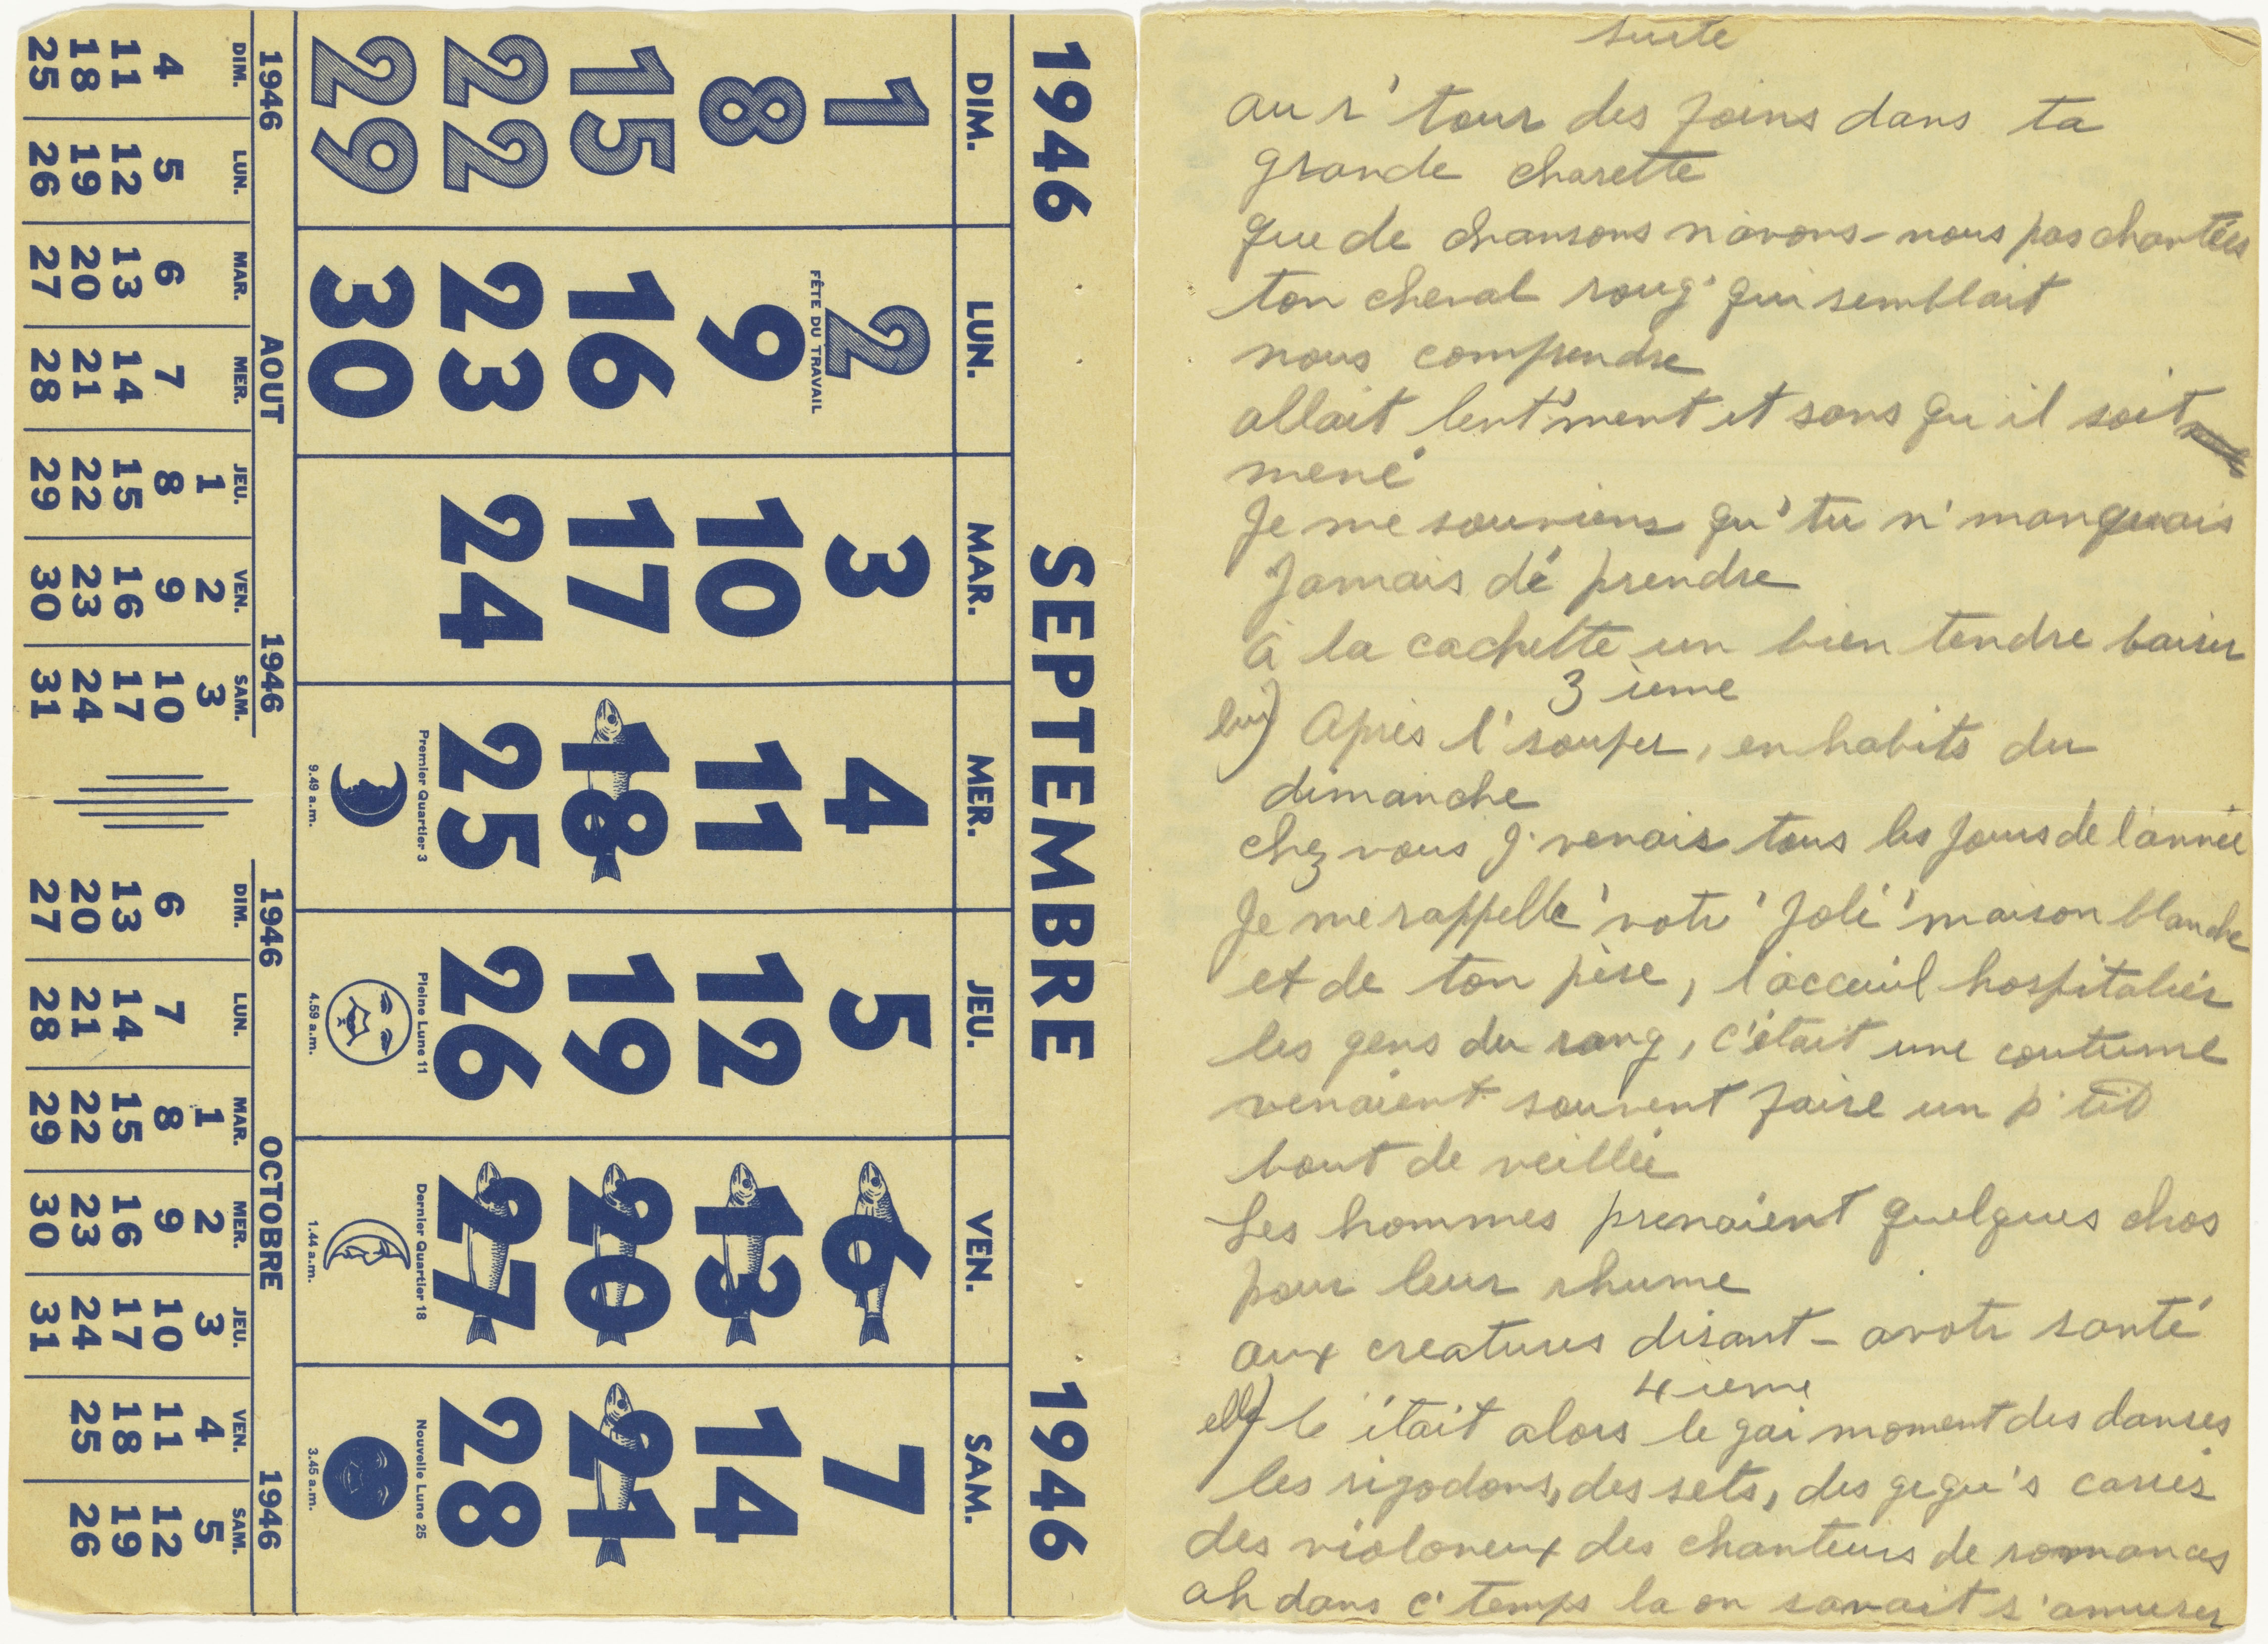 1946 SEPTEMBRE 1946
DIM. LUN. MAR. MER. JEU. VEN. SAM.
1 2 3 4 5 6 7
FÊTE DU TRAVAIL
8 9 10 11 12 13 14
15 16 17 18 19 20 21
22 23 24 25 26 27 28
29 30
Premier Quartier 3
9.49 a.m.
Pleine Lune 11
4.59 a.m.
Dernier Quartier 18
1.44 a.m.
Nouvelle Lune 25
3.45 a.m.
1946 AOUT 1946
DIM. LUN. MAR. MER. JEU. VEN. SAM.
1 2 3
4 5 6 7 8 9 10
11 12 13 14 15 16 17
18 19 20 21 22 23 24
25 26 27 28 29 30 31
1946 OCTOBRE 1946
DIM. LUN. MAR. MER. JEU. VEN. SAM.
1 2 3 4 5
6 7 8 9 10 11 12
13 14 15 16 17 18 19
20 21 22 23 24 25 26
27 28 29 30 31
suite
au r'tour des foins dans ta
grande charette
que de chansons n'avons-nous pas chantées
ton cheval roug' qui semblait
nous comprendre
allait lent'ment et sans qu'il soit
mené
Je me souviens qu'tu n'manquais
Jamais dé prendre
à la cachette un bien tendre baiser
3 ieme
lui) Après l'souper, en habits du
dimanche
chez vous j'venais tous les jours de l'année
Je me rappelle' votr' Joli' maison blanche
et de ton père, l'acceuil hospitalier
les gens du rang, c'était une coutume
venaient souvent faire un p'tit
bout de veillée
Les hommes prenaient quelques chos
pour leur rhume
aux creatures disant - a votr santé
4 ieme
elle) C'était alors le gai moment des danses
les rigodons, des sets, des gigu's carrés
des violoneux des chanteurs de romances
ah dans c'temps la on savait s'amuser